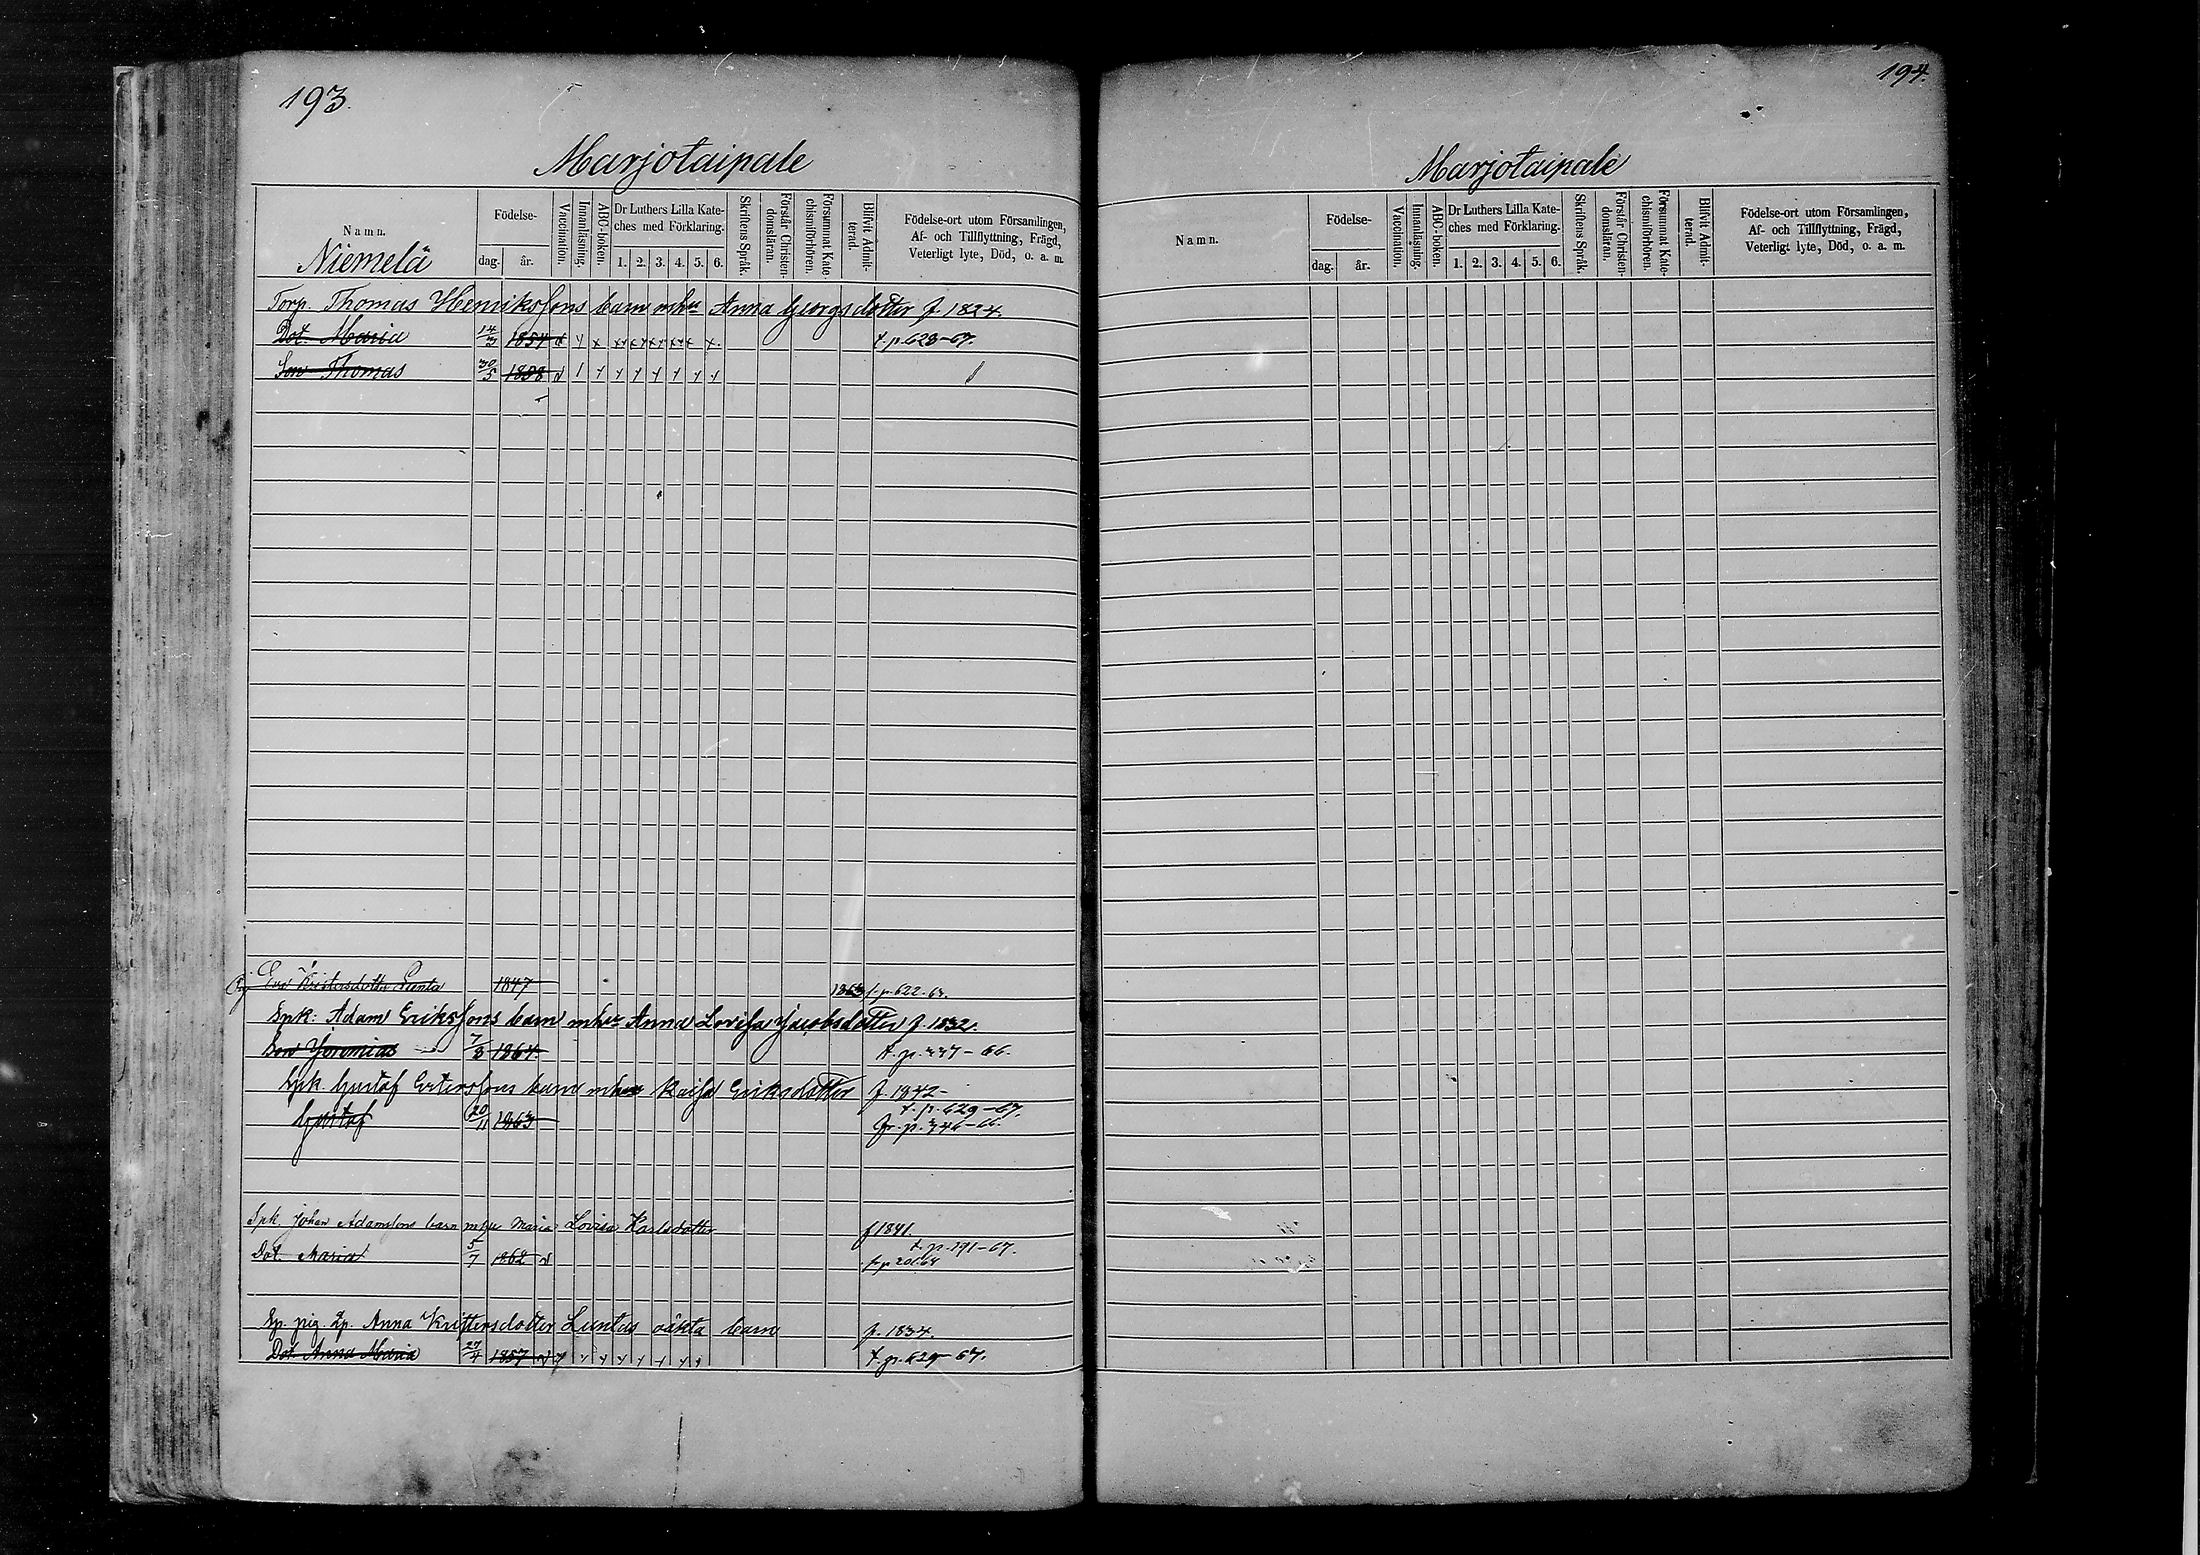 193.
Marjotaipale
Namn.
Niemelä
Födelse-
dag.
år.
Vaccination.
Innanläsning.
ABC-boken.
Dr Luthers Lilla Kate-
ches med Förklaring.
1. 2. 3. 4. 5. 6.
Skriftens Språk.
Förstår Christen-
domsläran.
Försummat Kate-
chismiförhören.
Blifvit Admit-
terad.
Födelse-ort utom Församlingen,
Af- och Tillflyttning, Frägd,
Veterligt lyte, Död, o. a. m.
Torp. Thomas Henrikssons barn mhu Anna Georgsdotter f. 1824
Dot. Maria 14/3 1854 t. p. 628-67.
Son Thomas 30/5 1858
Eva 1847 1863 f. p. 622. 63.
Spk: Adam Erikssons barn mhu Anna Lovisa Jacobsdotter f. 1832.
Son Jeremias 7/3 1864 t. p. 337-66.
Spk. Gustaf barn mhu Kaisa Eriksdotter f. 1842
t. p. 629-67.
Gustaf 20/11 1863 fr. p. 346-66.
Spk. Johan Adamssons barn mhu Maria Lovisa Karlsdotter f 1841.
t. p. 191-67.
Dot. Maria 5/7 1862 fr p 201.64
Sp. pig. Lp. Anna Kristersdotter Luntas oäkta barn f. 1834.
Dot Anna Maria 27/4 1857 t. p. 629-67.
194.
Marjotaipale
Namn.
Födelse-
dag.
år.
Vaccination.
Innanläsning.
ABC-boken.
Dr Luthers Lilla Kate-
ches med Förklaring.
1. 2. 3. 4. 5. 6.
Skriftens Språk.
Förstår Christen-
domsläran.
Försummat Kate-
chismiförhören.
Blifvit Admit-
terad.
Födelse-ort utom Församlingen,
Af- och Tillflyttning, Frägd,
Veterligt lyte, Död, o. a. m.